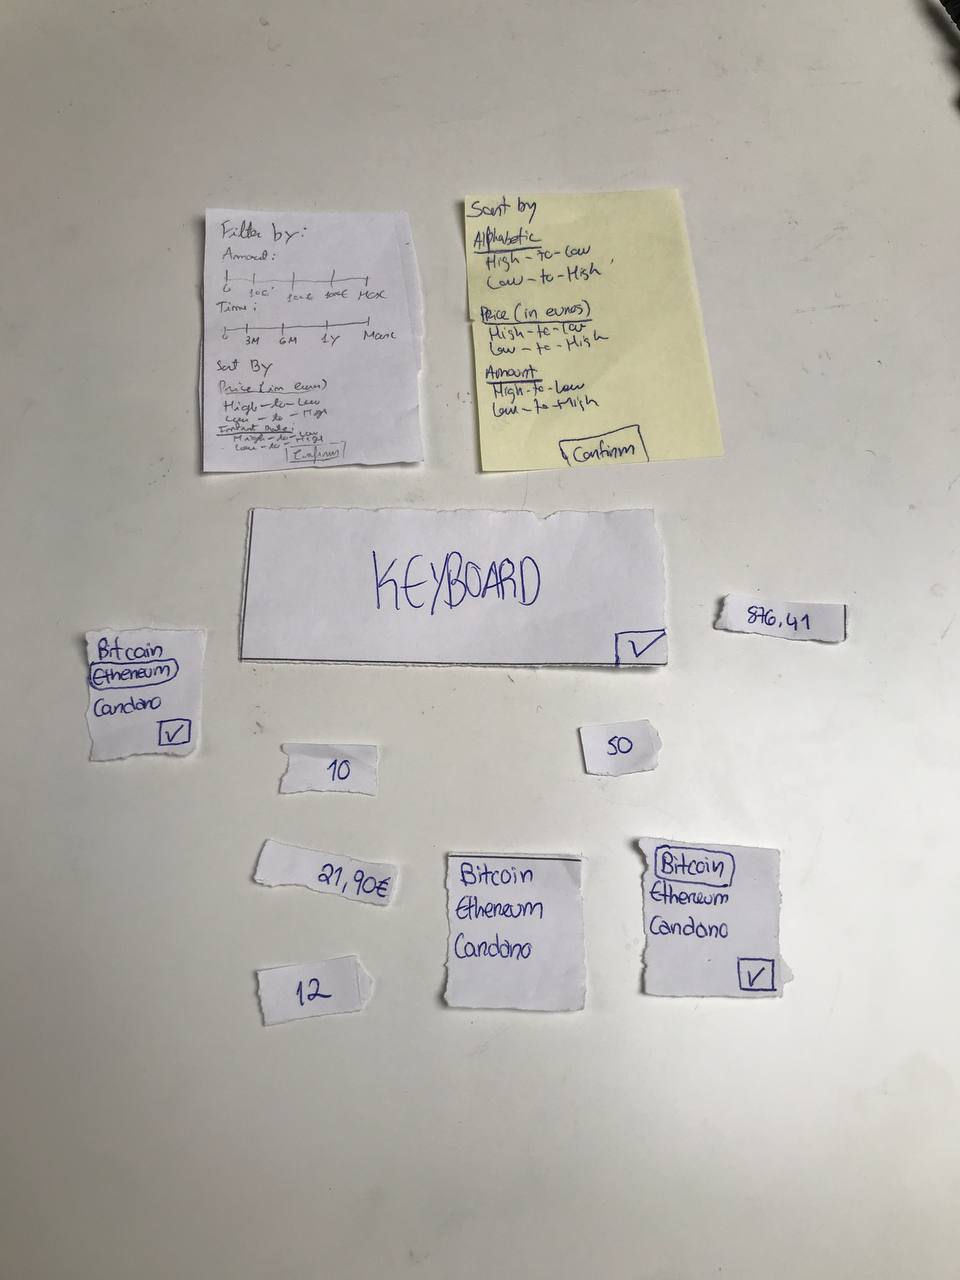 Filter by:
Amount:
0 10€ 100€ 1000€ Max
Time:
0 3M 6M 1Y Max
Sort By
Price (in euros)
High-to-Low
Low-to-High
High-to-Low
Low-to-High
Confirm
Sort by
Alphabetic
High-to-Low
Low-to-High
Price (in euros)
High-to-Low
Low-to-High
Amount
High-to-Low
Low-to-High
Confirm
KEYBOARD
876,41
Bitcoin
Ethereum
Candano
10
50
21,90€
Bitcoin
Ethereum
Candano
Bitcoin
Ethereum
Candano
12